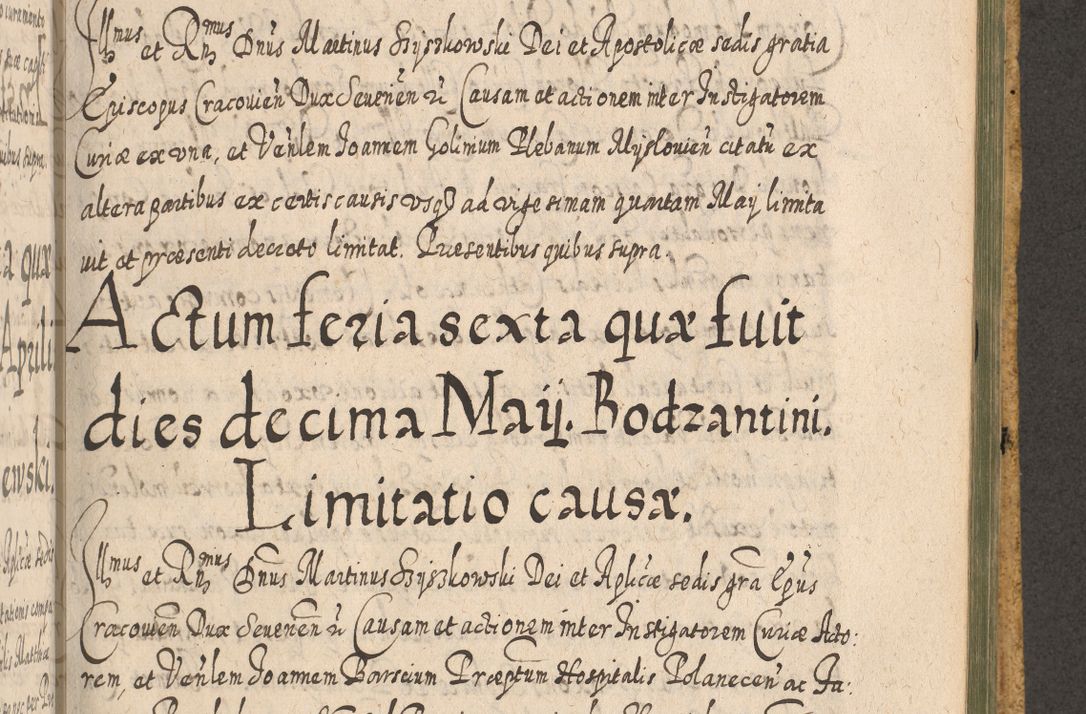 Illmus et Rndmus Dnus Martinus Szyszkowski Dei et Apostolicæ sedis gratia
Episcopus Cracovień Dux Severień etc Causam et actionem inter Instigatorem
Curiæ ex una, et Venlem Joannem Golinium Plebanum Myslovień citatū ex
altera partibus ex certis causis usq ad vigesimam quartam May limita
vit et præsenti decreto limitat. Præsentibus quibus supra.
Actum feria sexta quæ fuit
dies decima Maij. Bodzantini.
Limitatio causæ.
Illmus et Rndmus Dnus Martinus Szyszkowski Dei et Aplicæ sedis gra Epus
Cracovień Dux Severień etc Causam et actionem inter Instigatorem Curiæ Acto:
rem, et Venlem Joannem Barscium Præptum Hospitalis Polaneceń ac Ja: